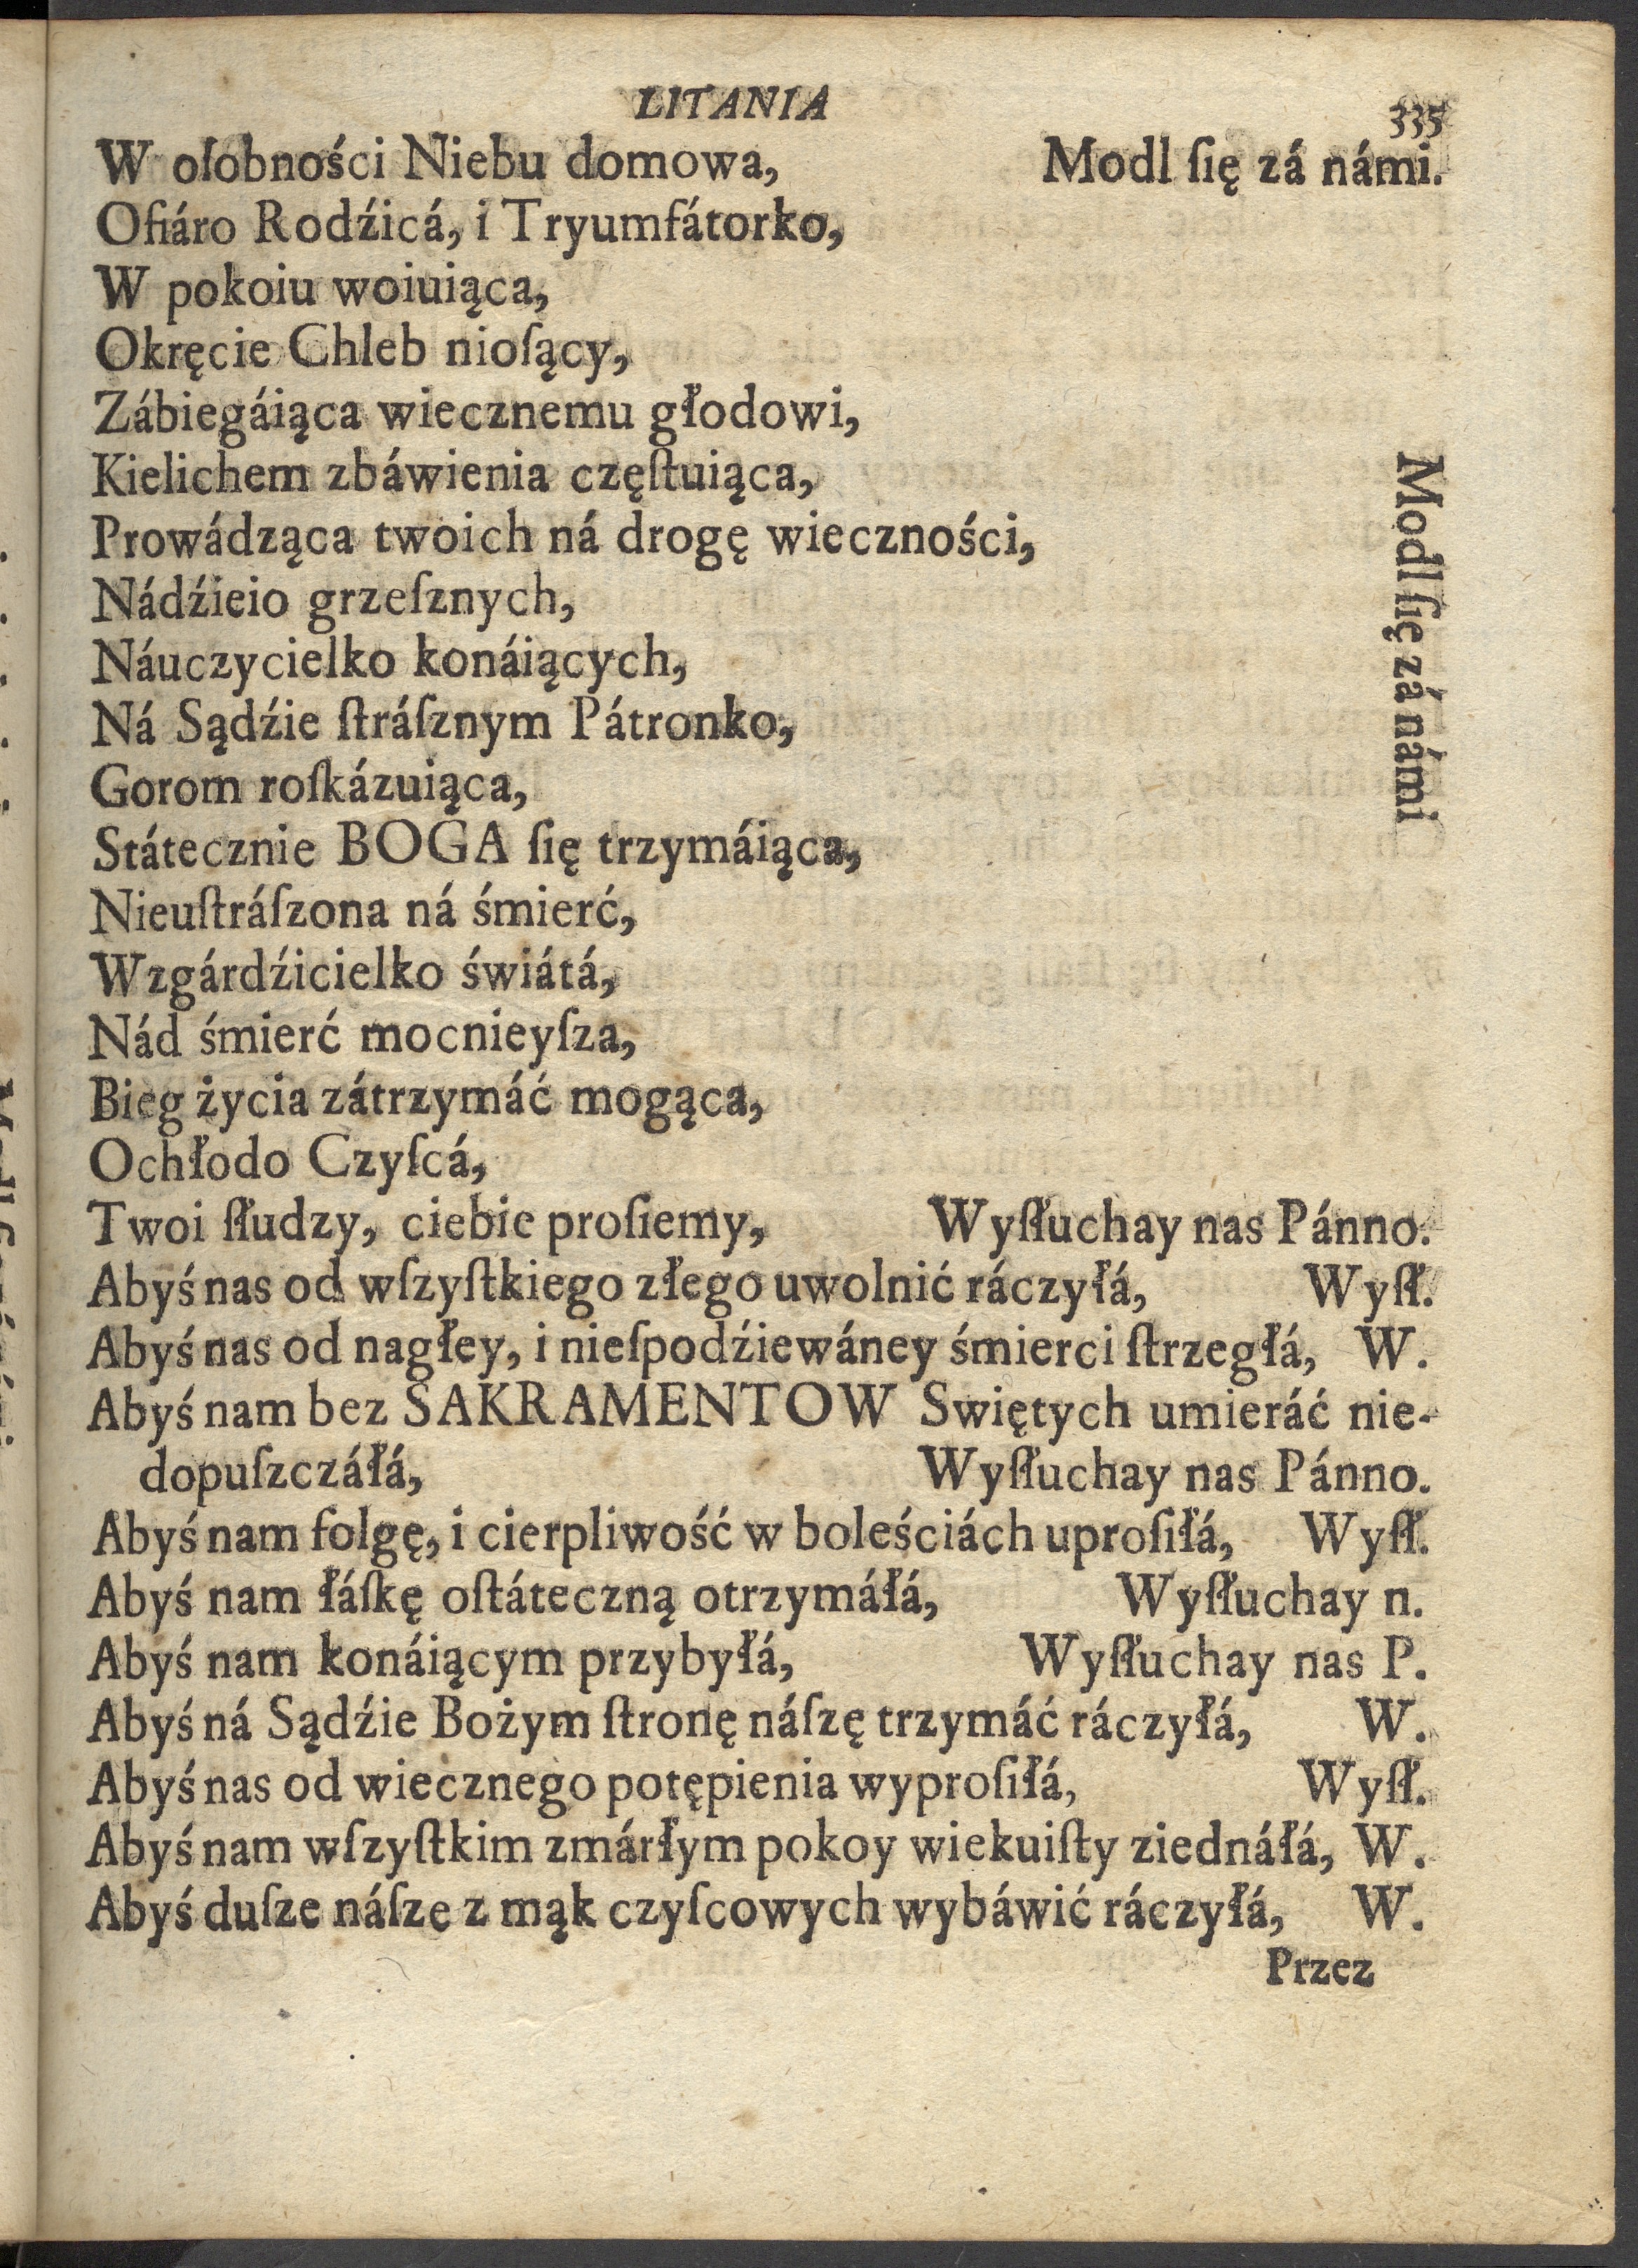 LITANIA 335
W oſobności Niebu domowa, Modl ſię zá námi.
Ofiáro Rodźicá, i Tryumfátorko,
W pokoiu woiuiąca,
Okręcie Chleb nioſący,
Zábiegáiąca wiecznemu głodowi,
Kielichem zbáwienia częſtuiąca,
Prowádząca twoich ná drogę wieczności,
Nádźieio grzeſznych,
Náuczycielko konáiących,
Ná Sądźie ſtráſznym Pátronko,
Gorom roſkázuiąca,
Státecznie BOGA ſię trzymáiąca,
Nieuſtráſzona ná śmierć,
Wzgárdźicielko świátá,
Nád śmierć mocnieyſza,
Bieg życia zátrzymáć mogąca,
Ochłodo Czyſcá,
Modl ſię zá námi
Twoi ſłudzy, ciebie proſiemy, Wyſłuchay nas Pánno.
Abyś nas od wſzyſtkiego złego uwolnić ráczyłá, Wyſł.
Abyś nas od nagłey, i nieſpodźiewáney śmierci ſtrzegłá, W.
Abyś nam bez SAKRAMENTOW Swiętych umieráć nie-
dopuſzczáłá, Wyſłuchay nas Pánno.
Abyś nam folgę, i cierpliwość w boleściách uproſiłá, Wyſł.
Abyś nam łáſkę oſtáteczną otrzymáłá, Wyſłuchay n.
Abyś nam konáiącym przybyłá, Wyſłuchay nas P.
Abyś ná Sądźie Bożym ſtronę náſzę trzymáć ráczyłá, W.
Abyś nas od wiecznego potępienia wyproſiłá, Wyſł.
Abyś nam wſzyſtkim zmárłym pokoy wiekuiſty ziednáłá, W.
Abyś duſze náſze z mąk czyſcowych wybáwić ráczyłá, W.
Przez